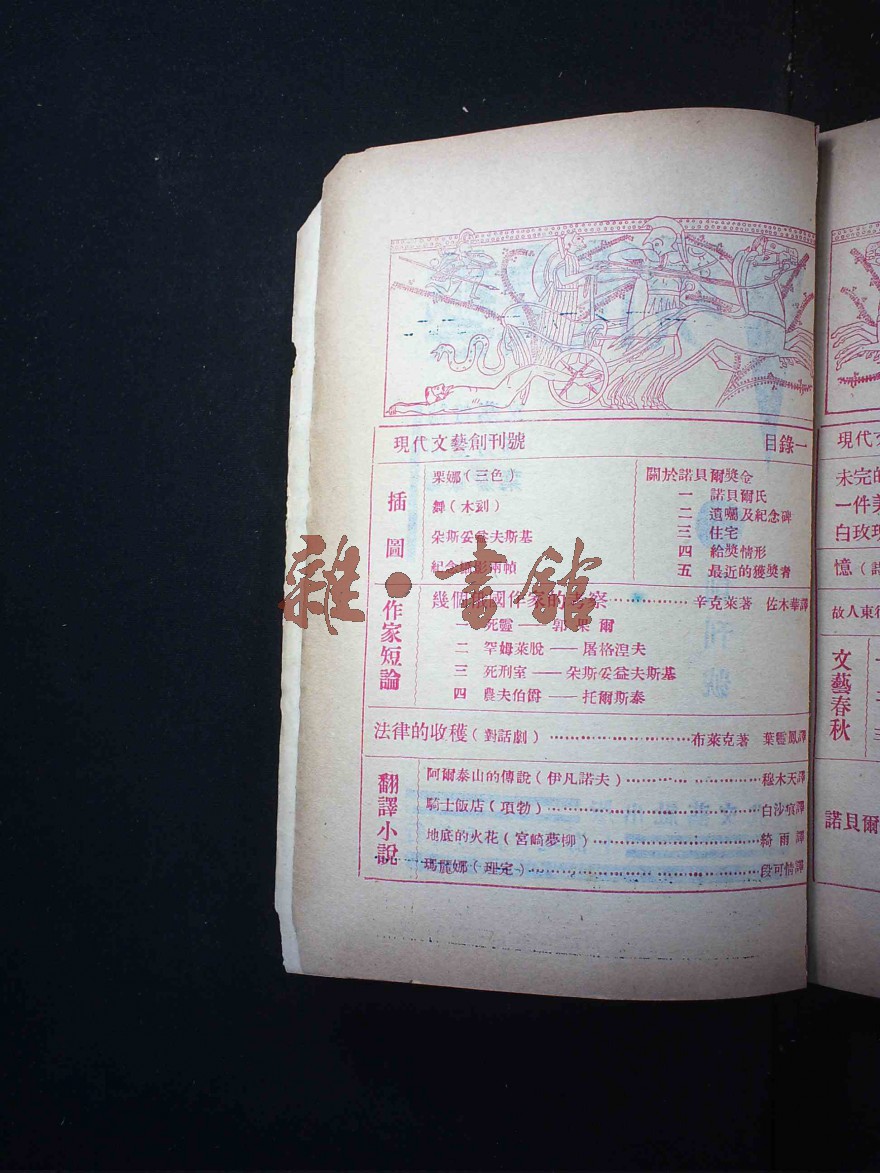 現代文藝創刊號 目錄一
插圖
栗娜(三色)
舞(木刻)
朵斯妥益夫斯基
紀念攝影兩幀
關於諾貝爾獎金
一 諾貝爾氏
二 遺囑及紀念碑
三 住宅
四 給獎情形
五 最近的獲獎者
作家短論
幾個俄國作家的考察…………辛克萊著 佐木華譯
一 死靈——郭果爾
二 罕姆萊脫——屠格涅夫
三 死刑室——朵斯妥益夫斯基
四 農夫伯爵——托爾斯泰
法律的收穫(對話劇)…………布萊克著 葉靈鳳譯
翻譯小說
阿爾泰山的傳說(伊凡諾夫)…………穆木天譯
騎士飯店(項勃)…………白沙痕譯
地底的火花(宮崎夢柳)…………綺雨譯
瑪麗娜(理定)…………段可情譯
雜·書館
刊號
現代文
未完的
一件美
白玫瑰
憶(詩
故人東行
文藝春秋
一
二
三
諾貝爾